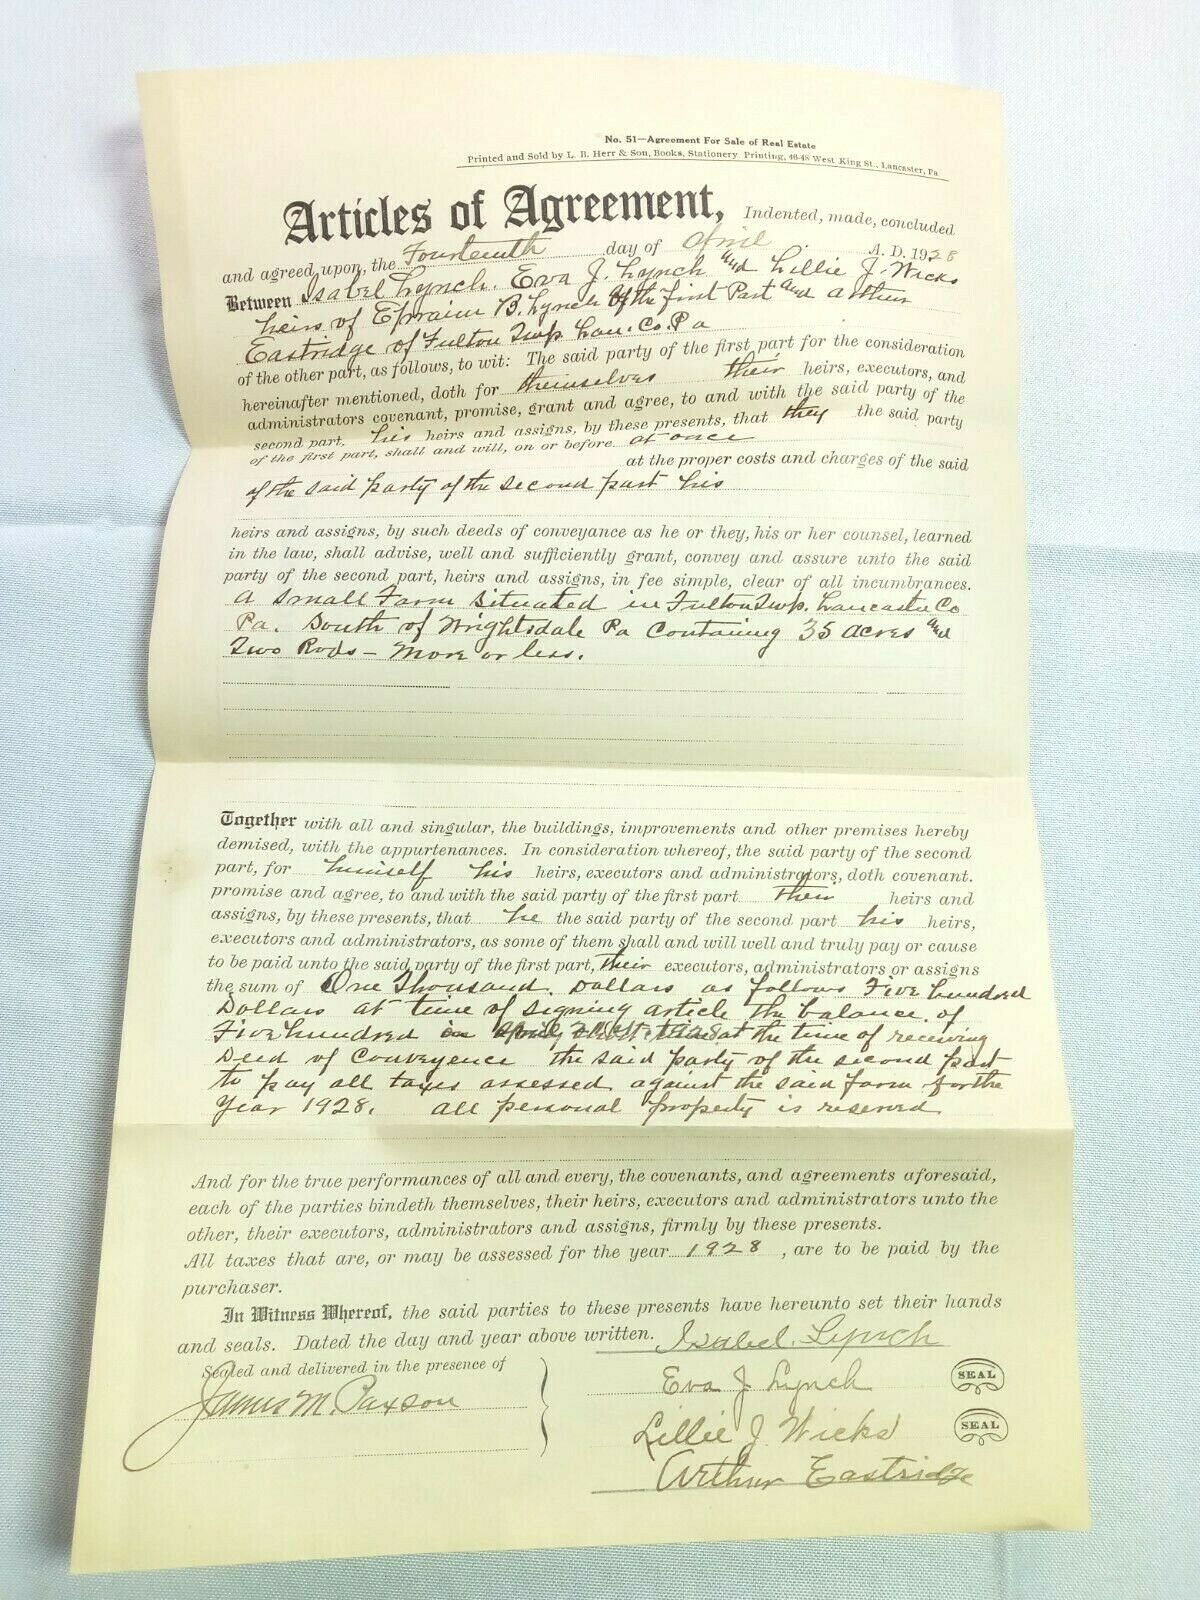 No. 51—Agreement For Sale of Real Estate
Printed and Sold by L. B. Herr & Son, Books, Stationery Printing, 46-48 West King St., Lancaster, Pa
Articles of Agreement, Indented, made, concluded
and agreed upon, the Fourteenth day of April A. D. 1928
Between Isabel Lynch. Eva J. Lynch and Lillie J. Wicks
heirs of Ephraim B. Lynch of the First Part and Arthur
Eastridge of Fulton Twp. Lan. Co. Pa
of the other part, as follows, to wit: The said party of the first part for the consideration
hereinafter mentioned, doth for themselves their heirs, executors, and
administrators covenant, promise, grant and agree, to and with the said party of the
second part. his heirs and assigns, by these presents, that they the said party
of the first part, shall and will, on or before at once
at the proper costs and charges of the said
of the said party of the second part his
heirs and assigns, by such deeds of conveyance as he or they, his or her counsel, learned
in the law, shall advise, well and sufficiently grant, convey and assure unto the said
party of the second part, heirs and assigns, in fee simple, clear of all incumbrances.
A Small Farm Situated in Fulton Twp. Lancaster Co
Pa. South of Wrightsdale Pa Containing 35 acres and
Two Rods – More or less.
Together with all and singular, the buildings, improvements and other premises hereby
demised, with the appurtenances. In consideration whereof, the said party of the second
part, for himself his heirs, executors and administrators, doth covenant.
promise and agree, to and with the said party of the first part their heirs and
assigns, by these presents, that he the said party of the second part his heirs,
executors and administrators, as some of them shall and will well and truly pay or cause
to be paid unto the said party of the first part, their executors, administrators or assigns
the sum of One Thousand Dollars as follows Five hundred
Dollars at time of signing article the balance of
Five hundred at the time of receiving
Deed of Conveyence the said party of the second part
to pay all taxes assessed against the said farm for the
Year 1928. all personal property is reserved
And for the true performances of all and every, the covenants, and agreements aforesaid,
each of the parties bindeth themselves, their heirs, executors and administrators unto the
other, their executors, administrators and assigns, firmly by these presents.
All taxes that are, or may be assessed for the year 1928, are to be paid by the
purchaser.
In Witness Whereof, the said parties to these presents have hereunto set their hands
and seals. Dated the day and year above written. Isabel. Lynch
Sealed and delivered in the presence of
Eva J Lynch SEAL
James M. Paxson
Lillie J. Wicks SEAL
Arthur Eastridge